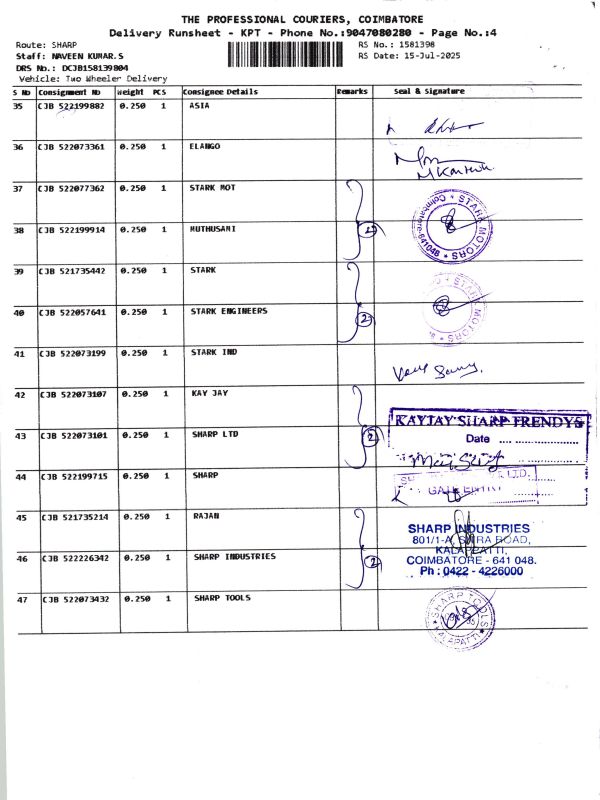 THE PROFESSIONAL COURIERS, COIMBATORE
Delivery Runsheet - KPT - Phone No.:9047080280 - Page No.:4
Route: SHARP RS No.: 1581398
Staff: NAVEEN KUMAR.S RS Date: 15-Jul-2025
DRS No.: DCJB158139804
Vehicle: Two Wheeler Delivery
S No Consignment No Weight PCS Consignee Details Remarks Seal & Signature
35 CJB 522199882 0.250 1 ASIA
36 CJB 522073361 0.250 1 ELANGO
37 CJB 522077362 0.250 1 STARK MOT
STARK MOTORS * Coimbatore-641048 *
38 CJB 522199914 0.250 1 MUTHUSAMI 2
39 CJB 521735442 0.250 1 STARK
STARK MOTORS
40 CJB 522057641 0.250 1 STARK ENGINEERS 2
41 CJB 522073199 0.250 1 STARK IND
42 CJB 522073107 0.250 1 KAY JAY
KAYJAY SHARP TRENDYS
Date
43 CJB 522073101 0.250 1 SHARP LTD 2
44 CJB 522199715 0.250 1 SHARP
LTD.
GATE ENTRY
45 CJB 521735214 0.250 1 RAJAN
SHARP INDUSTRIES
801/1-A, ROAD,
KALAPATTI,
COIMBATORE - 641 048.
Ph : 0422 - 4226000
46 CJB 522226342 0.250 1 SHARP INDUSTRIES 2
47 CJB 522073432 0.250 1 SHARP TOOLS
SHARP TOOLS * KALAPATTI *